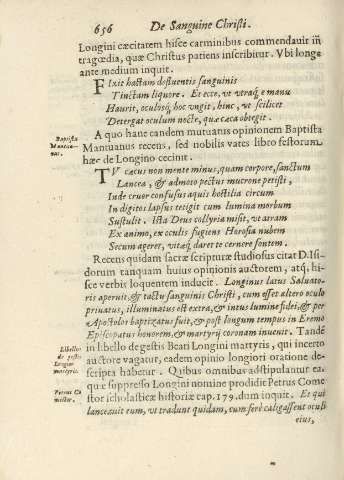 656 De Sanguine Christi.
Longini cæcitatem hisce carminibus commendauit in
tragœdia, quæ Christus patiens inscribitur. Vbi longe
ante medium inquit.
FIxit hastam defluentis sanguinis
Tinctam liquore. Et ecce, vt vtraq; e manu
Haurit, oculosq; hoc vngit, hinc, vt scilicet
Detergat oculum nocte, quæ cæca obegit.
Baptista
Mantua-
nus.
A quo hanc eandem mutuatus opinionem Baptista
Mantuanus recens, sed nobilis vates libro festorum
hæc de Longino cecinit.
TV cæcus non mente minus, quam corpore, sanctum
Lancea, & admoto pectus mucrone petisti,
Inde cruor confusus aquis hostilia circum
In digitos lapsus tetigit cum lumina morbum
Sustulit. Ista Deus collyria misit, vt atram
Ex animo, ex oculis fugiens Horosia nubem
Secum ageret, vitæq; daret te cernere fontem.
Recens quidam sacræ scripturæ studiosus citat D. Isi-
dorum tanquam huius opinionis auctorem, atq; hi-
sce verbis loquentem inducit. Longinus latus Saluato-
ris aperuit, & tactu sanguinis Christi, cum esset altero oculo
priuatus, illuminatus est extra, & intus lumine fidei, & per
Apostolos baptizatus fuit, & post longum tempus in Eremo
Episcopatus honorem, & martyrij coronam inuenit. Tandē
Libellus
de gestis
Longini
martyris.
in libello de gestis Beati Longini martyris, qui incerto
auctore vagatur, eadem opinio longiori oratione de-
scripta habetur. Quibus omnibus adstipulantur ea
Petrus Co
mestor.
quæ suppresso Longini nomine prodidit Petrus Come
stor scholasticæ historiæ cap. 179. dum inquit. Et qui
lanceauit eum, vt tradunt quidam, cum ferè caligassent oculi
eius,